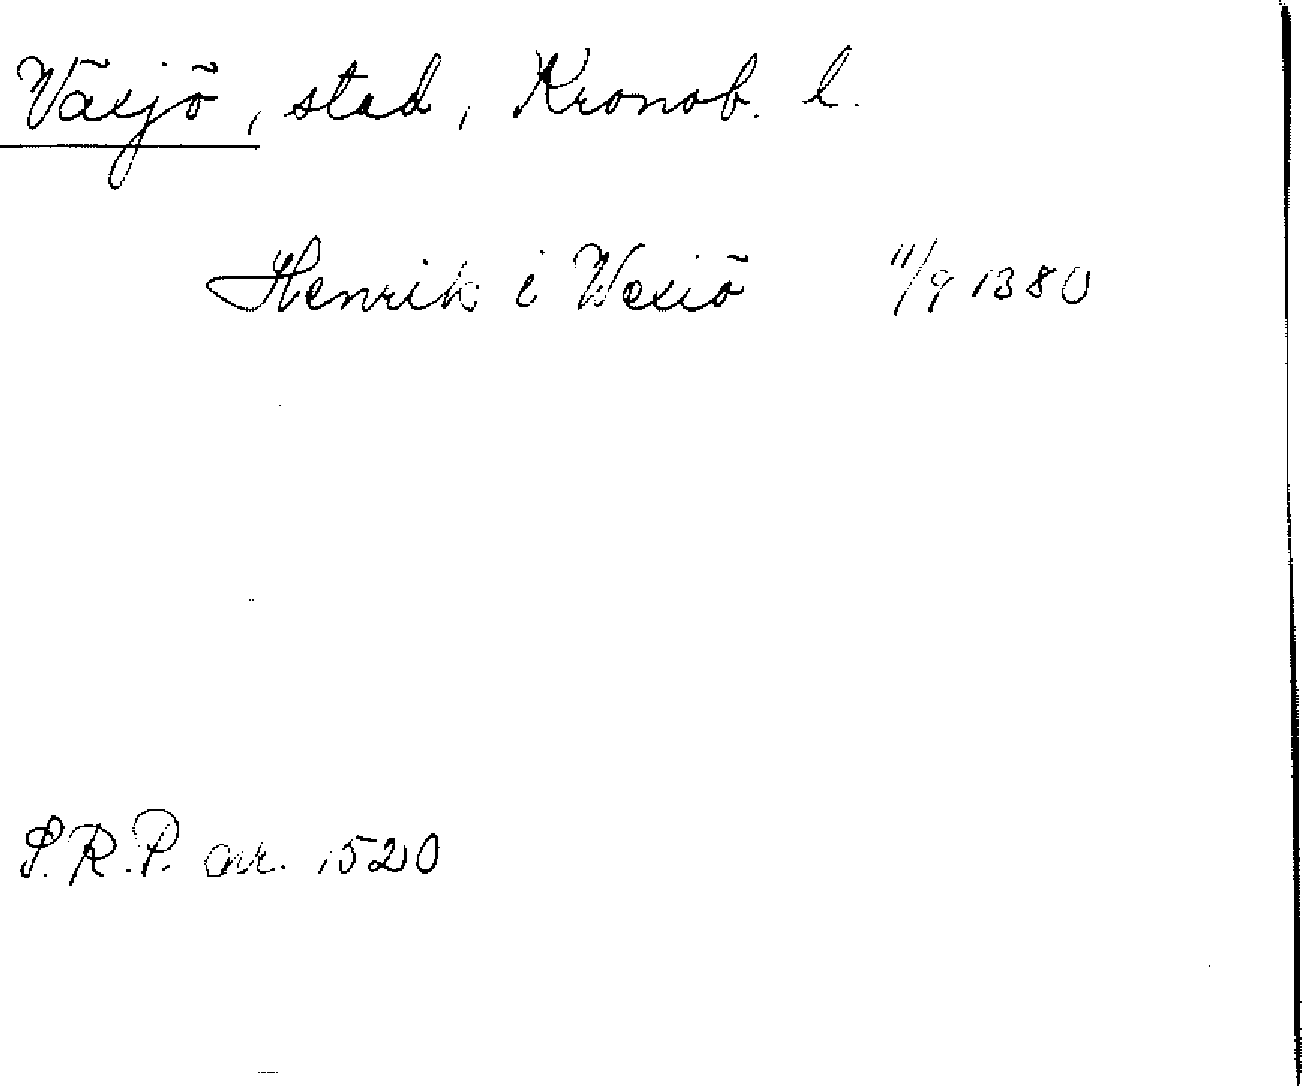 Växjö, stad, Kronob. l.
Henrik i Wexiö 11/9 1380
S.R.P. nr. 1520